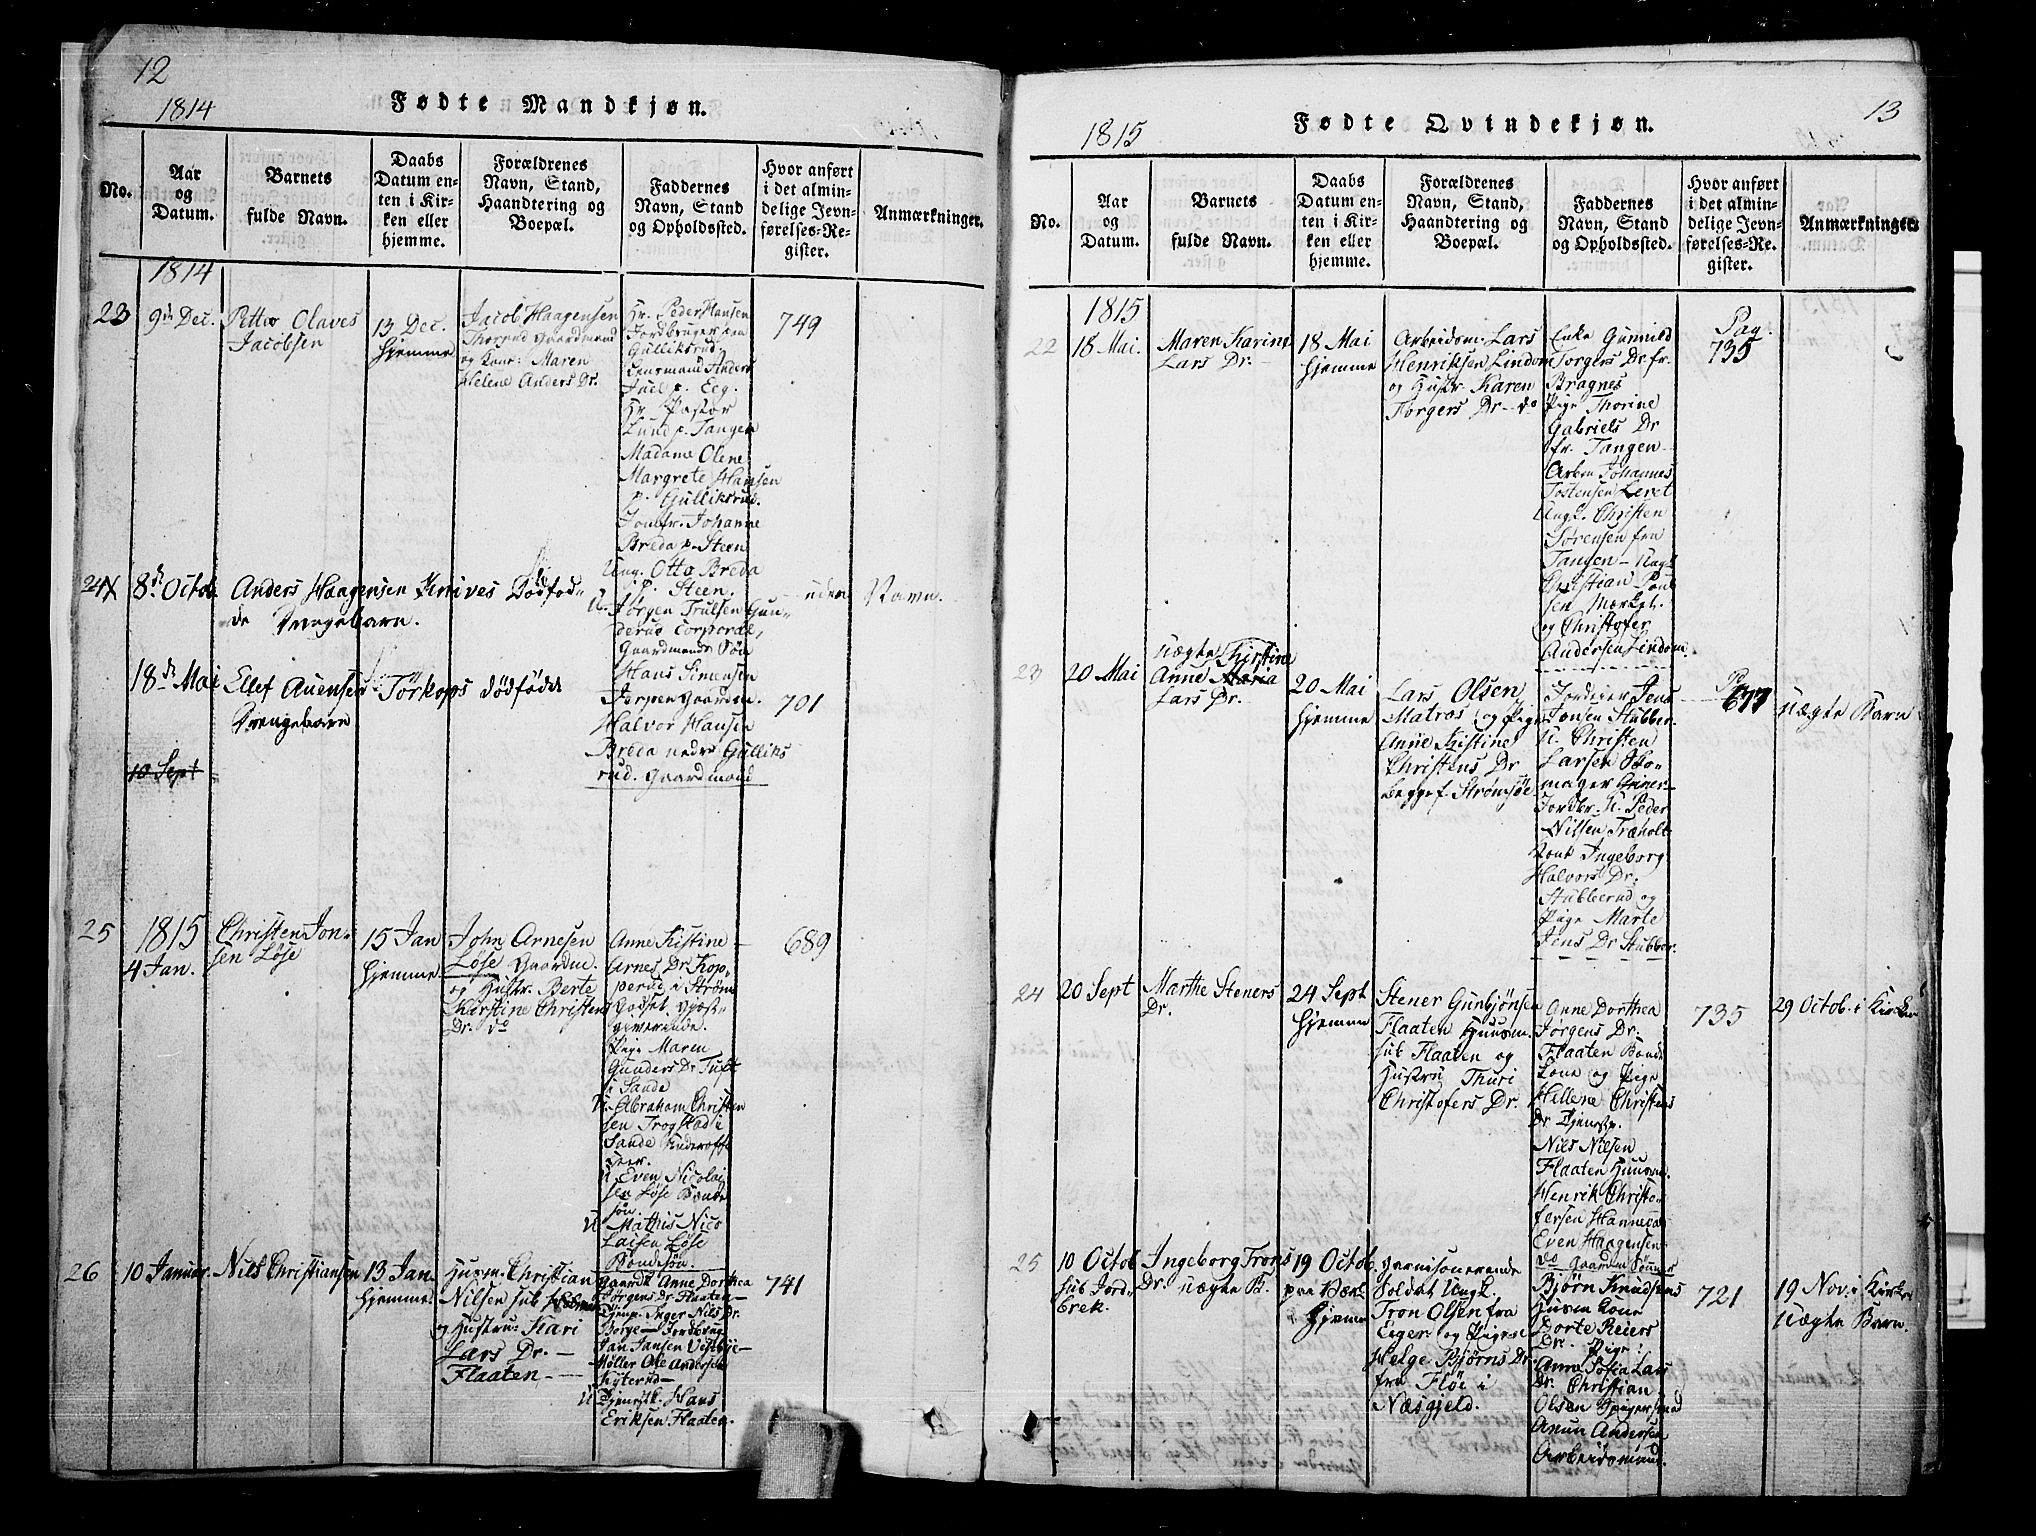 12
1814
Fødte Mandkjøn.
No.
Aar
og
Datum.
Barnets
fulde Navn.
Daabs
Datum en-
ten i Kir-
ken eller
hjemme.
Forældrenes
Navn, Stand,
Haandtering og
Boepæl.
Faddernes
Navn, Stand
og Opholdssted.
Hvor anført
i det almin-
delige Jevn-
førelses-Re-
gister.
Anmærkninger.
1814
23
9de Dec.
Petter Olaves
Jacobsen
13 Dec.
hjemme
Jacob Haagensen
Thorrud Gaardmand
og Kone: Maren
Helene Anders Dr.
Hr. Peder Hansen
Jordbruger paa
Gulliksrud,
Lensmand Anders
Juel p. Eeg.
Hr. Pastor
Lund p. Tangen
Madame Olene
Margrete Hansen
p. Gulliksrud.
Jomfr. Johanne
Breda p. Steen
Ung. Otto Breda
p. Steen.
749
24
8de Octob.
Anders Haagensen Knives Dödfød-
de Drengebarn.
uden Navn.
18de Mai
Ellef Auensen Törkops dödfödt
Drengebarn
U. Jörgen Trulsen Gun-
derud Corporal,
Gaardmands Søn
Hans Simensen
Jerpen Gaardm.
Halvor Hansen
Breda nedre Gulliks
rud. Gaardmand
701
10 Sept
25
1815
4 Jan.
Christen Jon-
sen Løse
15 Jan
hjemme
John Arnesen
Løse Gaardm.
og Hustr. Berte
Kirstine Christens
Dr. do
Anne Kistine
Arnes Dr. Kop-
perud i Strøm
Godset
giverinde.
Pige Maren
Gunders Dr. Tuft
i Sande
U. Abraham Christen
sen Trogstad i
Sande Underoffi
ceer.
U Even Nicolai
sen Løse Bonde
søn.
U Mathis Nico
laisen Løse
Bondesøn.
689
26
10 Januar.
Nils Christiansen
13 Jan.
hjemme
Husm. Christian
Nilsen sub
og Hustrue Kari
Lars Dr. —
Flaaten —
Gaardk. Anne Dorthea
Jörgens Dr. Flaaten—
Tjenp. Inger Nils Dr.
Borge— Jordbrug
Jan Jansen Vestbye—
Møller Ole Andersen
Kyterud—
U Tjenestk. Hans
Eriksen Flaaten.
741
13
1815
Fødte Qvindekjøn.
No.
Aar
og
Datum.
Barnets
fulde Navn.
Daabs
Datum en-
ten i Kir-
ken eller
hjemme.
Forældrenes
Navn, Stand,
Haandtering og
Boepæl.
Faddernes
Navn, Stand
og Opholdssted.
Hvor anført
i det almin-
delige Jevn-
førelses-Re-
gister.
Anmærkninger.
1815
22
18 Mai.
Maren Karine
Lars Dr. —
18 Mai
hjemme
Arbeidsm: Lars
Henriksen Lindom
og Hustr. Karen
Torgers Dr— do
Enke Gunnild
Torgers Dr. fr.
Bragnes
Pige Thorine
Gabriels Dr
fr. Tangen
Arbm Johannes
Tostensen Leret
Ungk. Christen
Sørensen fra
Tangen— Ungk.
Christian Poul
sen Mærket.
og Christofer
Andersen Lindom.
Pag.
735
23
20 Mai
uægte Kirstine
Anne Maria
Lars Dr.
20 Mai
hjemme
Lars Olsen
Matros og Pige
Anne Kistine
Christens Dr
begge f. Strømsøe
Jordeier Jens
Jonsen Stubber
U. Christen
Larsen Sko-
mager
Jordbr. U. Peder
Nilsen Træholt
Konk Ingeborg
Halvors Dr.
Stubberud og
Pige Marte
Jens Dr Stubber.
677
uægte Barn
24
20 Sept
Marthe Steners
Dr.
24 Sept
hjemme
Stener Gunbjönsen
Flaaten Huusm.
sub Flaaten og
Hustru Thuri
Christofers Dr.
Anne Dorthea
Jørgens Dr.
Flaaten Bonde
Kone og Pige
Hellene Christens
Dr Tjenestp.
Nils Nilsen
Flaaten Huusm.
Henrik Christo-
fersen Hannevoe
Even Haagensen
do Gaardm Sønner
735
29 Octob. i Kirken
25
10 Octob
sub Jord-
brek.
Ingeborg Trons
Dr. uægte B.
19 Octob.
paa
hjemme
Garnisonerende
Soldat Ungk.
Tron Olsen fra
Eger og Pigen
Helge Bjørns Dr.
fra Fløe i
Næsgjeld.
Bjørn Knudsens
Husm Kone
Dorte Reiers
Dr. Pige:
Anne Sofia Lars
Dr. Christian
Olsen
Anun Andersen
Arbeidsmænd.
721
19 Nov. i Kirke
Uægte Barn.